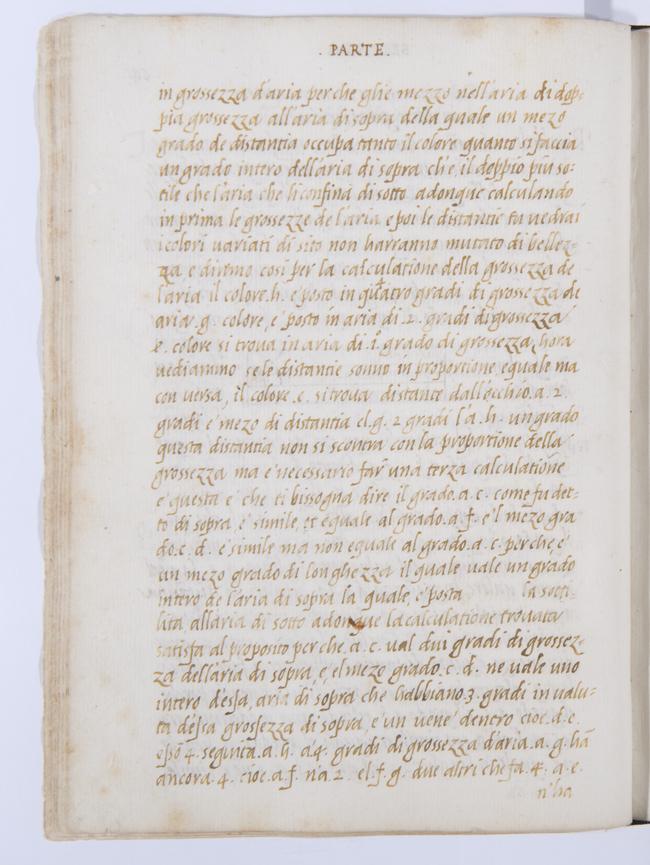 . PARTE .
in grossezza d'aria perche glie mezzo nell'aria di dop-
pia grossezza all'aria di sopra della quale un mezo
grado de distantia occupa tanto il colore quanto si faccia
un grado intero dell'aria di sopra ch'e, il doppio piu so:
tile che l'aria che li confina di sotto adonque calculando
in prima le grossezze de l'aria e poi le distantie tu uedrai
i colori uariati di sito non harranno mutato di bellez-
za e diremo cosi per la calculatione della grossezza de
l'aria il colore .h. e' posto in quatro gradi di grossezza de
aria .g. colore, e' posto in aria di .2. gradi di grossezza
e . colore si troua in aria di .i. grado di grossezza, hora
uediammo se le distantie sonno in proportione equale ma
con uersa, il colore .e. si troua distante dall'occhio .a. 2.
gradi e' mezo di distantia el .g. 2 gradi l'a .h. un grado
questa distantia non si scontra con la proportione della
grossezza ma e' necessario far una terza calculatione
e' questa e' che ti bissogna dire il grado .a. c. come fu det-
to di sopra e' simile, et equale al grado .a. f. e'l mezo gra
do .c. d. e' simile ma non equale al grado .a. c. perche, e'
un mezo grado di longhezza il quale uale un grado
intero de l'aria di sopra la quale, e' posta la sotti-
lita all'aria di sotto adonque la calculatione trouata
satisfa al proposito perche .a. c. ual dui gradi di grossez-
za dell'aria di sopra, e, el mezo grado .c. d. ne uale uno
intero d'essa, aria di sopra che habbiano .3. gradi in ualu-
ta d'essa grossezza di sopra, e' un uene' dentro cioe .d. e.
4. seguita .a. h. a .4. gradi di grossezza d'aria .a. g. ha
ancora .4. cioe .a. f. n'a .2. el .f. g. due altri che fa .4. a. e.
n'ha